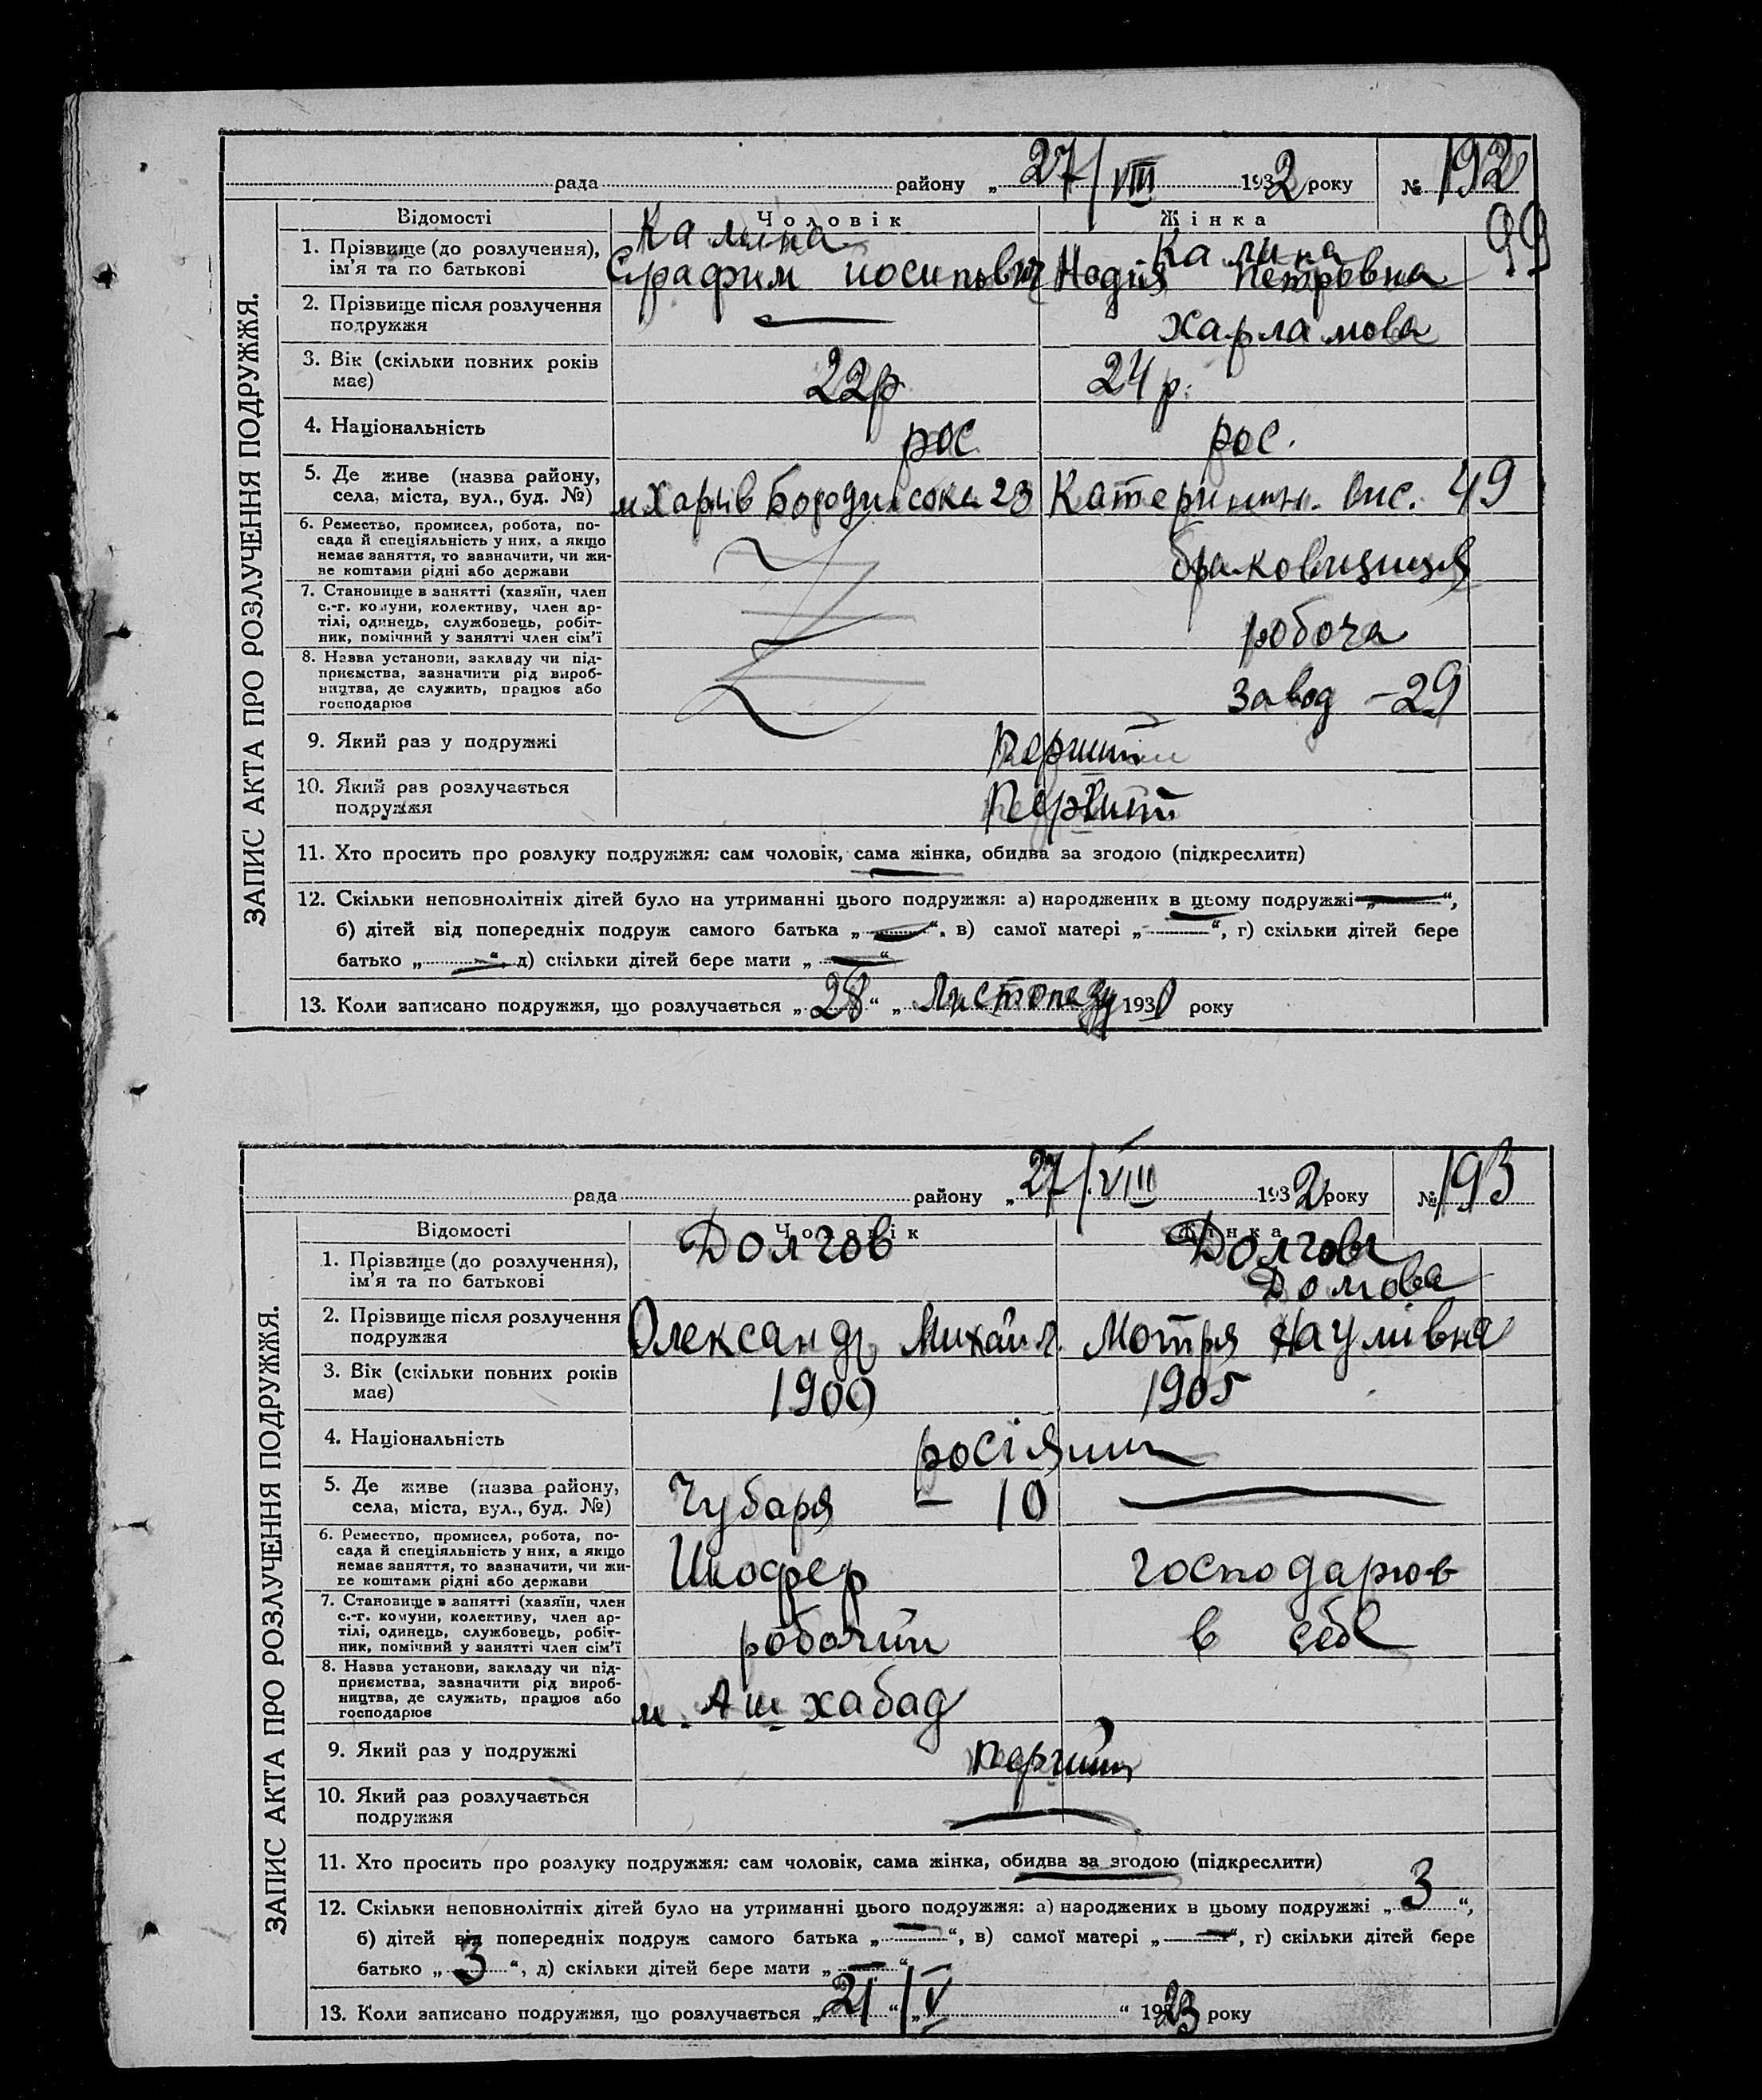 рада района „ 27/VIII 1932 року № 192
99
Відомості Чоловік Жінка
Калина Калина
1. Прізвище (до розлучення), ім'я та по батькові Серафим Йосипович Надія Петровна
2. Прізвище після розлучення подружжя — Харламова
3. Вік (скільки повних років має) 22р 24 р.
4. Національність рос рос.
5. Де живе (назва району, села, міста, вул., буд. №) м Харків Бородинська 23 Катеринин. вис. 49
6. Ремество, промисел, робота, посада й спеціяльність у них, а якщо немає заняття, то зазначити, чи живе коштами рідні або держави браковщиця
7. Становище в занятті (хазяїн, член с.-г. комуни, колективу, член артілі, одинець, службовець, робітник, помічний у занятті член сім'ї робоча
8. Назва установи, закладу чи підприємства, зазначити рід виробництва, де служить, працює або господарює завод - 29
9. Який раз у подружжі перший
10. Який раз розлучається подружжя перший
11. Хто просить про розлуку подружжя: сам чоловік, сама жінка, обидва за згодою (підкреслити)
12. Скільки неповнолітніх дітей було на утриманні цього подружжя: а) народжених в цьому подружжі „—“,
б) дітей від попередніх подруж самого батька „—“, в) самої матері „—“, г) скільки дітей бере
батько „—“, д) скільки дітей бере мати „—“
13. Коли записано подружжя, що розлучається „28“ „Листопаду 1930 року
ЗАПИС АКТА ПРО РОЗЛУЧЕННЯ ПОДРУЖЖЯ.
рада району „ 27/VIII 1932 року № 193
Відомості Чоловік Жінка
Долгов Долгова
1. Прізвище (до розлучення), ім'я та по батькові
2. Прізвище після розлучення подружжя Олександр Михайл. Мотря Наумівна
3. Вік (скільки повних років має) 1900 1905
4. Національність росіянин
5. Де живе (назва району, села, міста, вул., буд. №) Чубаря - 10 —
6. Ремество, промисел, робота, посада й спеціяльність у них, а якщо немає заняття, то зазначити, чи живе коштами рідні або держави Шофер господарює
7. Становище в занятті (хазяїн, член с.-г. комуни, колективу, член артілі, одинець, службовець, робітник, помічний у занятті член сім'ї робочий в себе
8. Назва установи, закладу чи підприємства, зазначити рід виробництва, де служить, працює або господарює м. Ашхабад
9. Який раз у подружжі перший
10. Який раз розлучається подружжя —
11. Хто просить про розлуку подружжя: сам чоловік, сама жінка, обидва за згодою (підкреслити)
12. Скільки неповнолітніх дітей було на утриманні цього подружжя: а) народжених в цьому подружжі „3“,
б) дітей від попередніх подруж самого батька „—“, в) самої матері „—“, г) скільки дітей бере
батько „3“, д) скільки дітей бере мати „—“
13. Коли записано подружжя, що розлучається „21“/„V“ 1923 року
ЗАПИС АКТА ПРО РОЗЛУЧЕННЯ ПОДРУЖЖЯ.